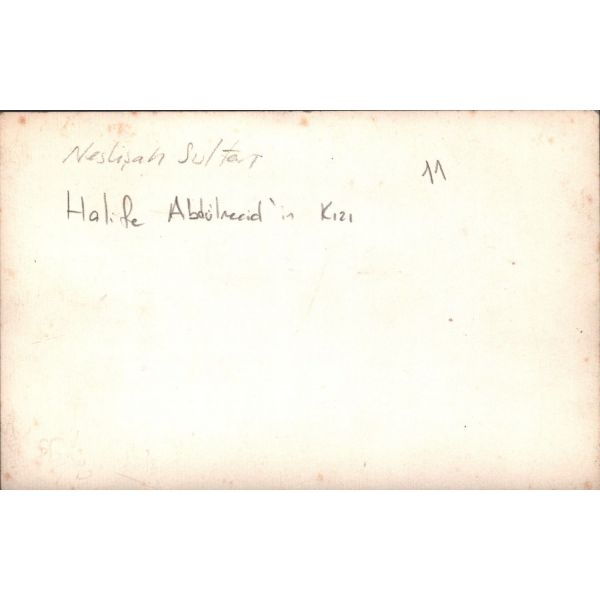 Neslişah Sultan
11
Halife Abdülmecid'in Kızı